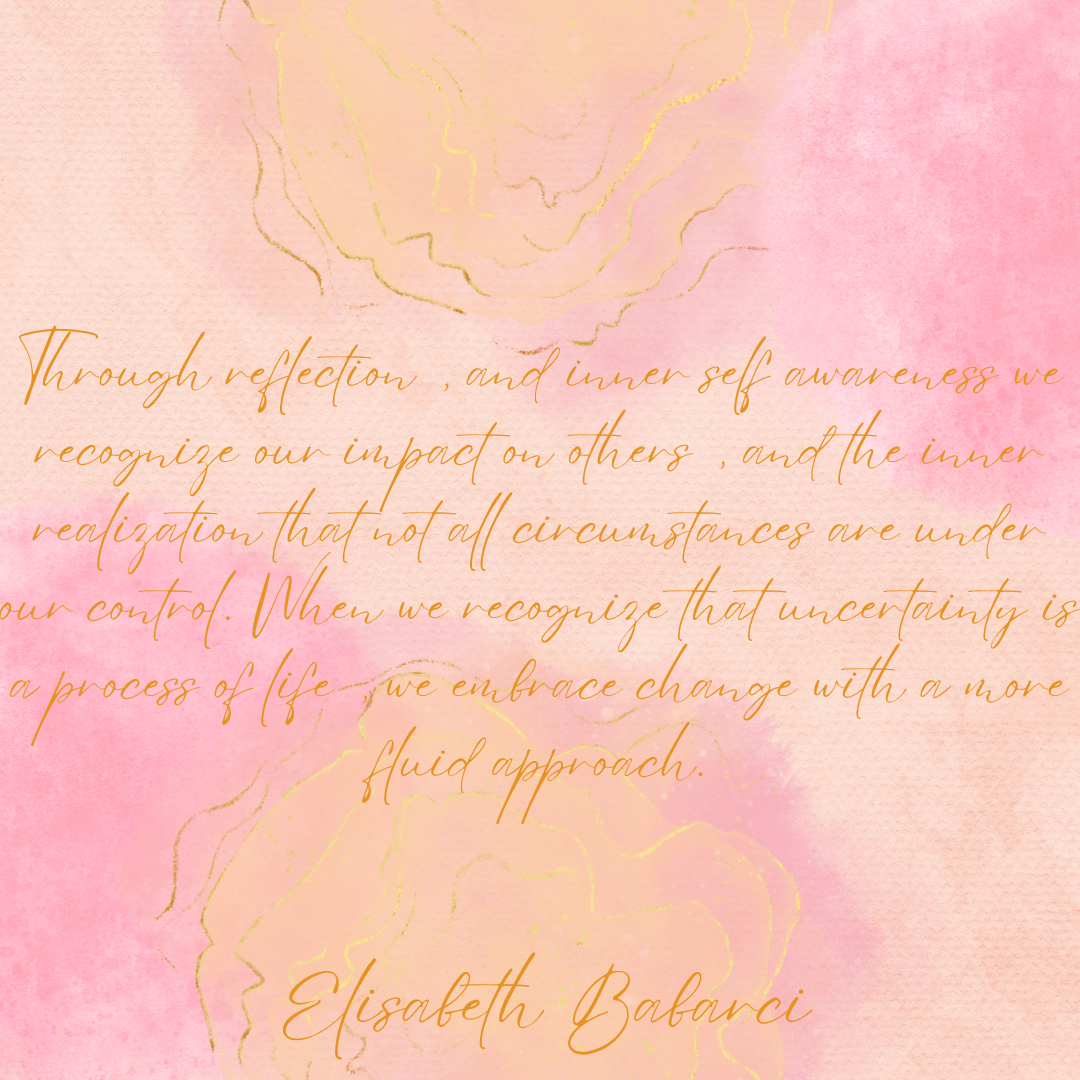 Through reflection , and inner self awareness we
recognize our impact on others , and the inner
realization that not all circumstances are under
our control. When we recognize that uncertainty is
a process of life , we embrace change with a more
fluid approach.
Elisabeth Babarci